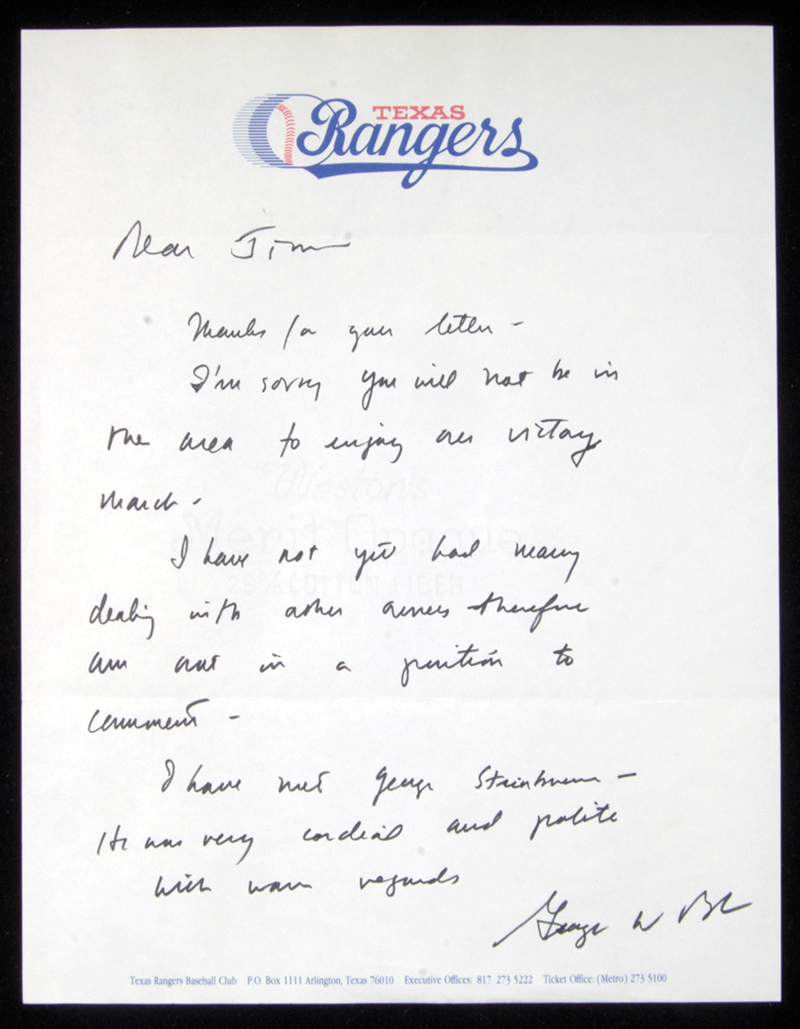 TEXAS
Rangers
Dear Jim
Thanks for your letter -
I'm sorry you will not be in
the area to enjoy our victory
march -
Weston's
Merit Opaque
25% COTTON FIBER
I have not yet had many
dealing with other owners therefore
am not in a position to
comment -
I have met George Steinbrenner -
He was very cordial and polite
With warm regards
George W Bush
Texas Rangers Baseball Club P.O. Box 1111 Arlington, Texas 76010 Executive Offices: 817 273 5222 Ticket Office: (Metro) 273 5100